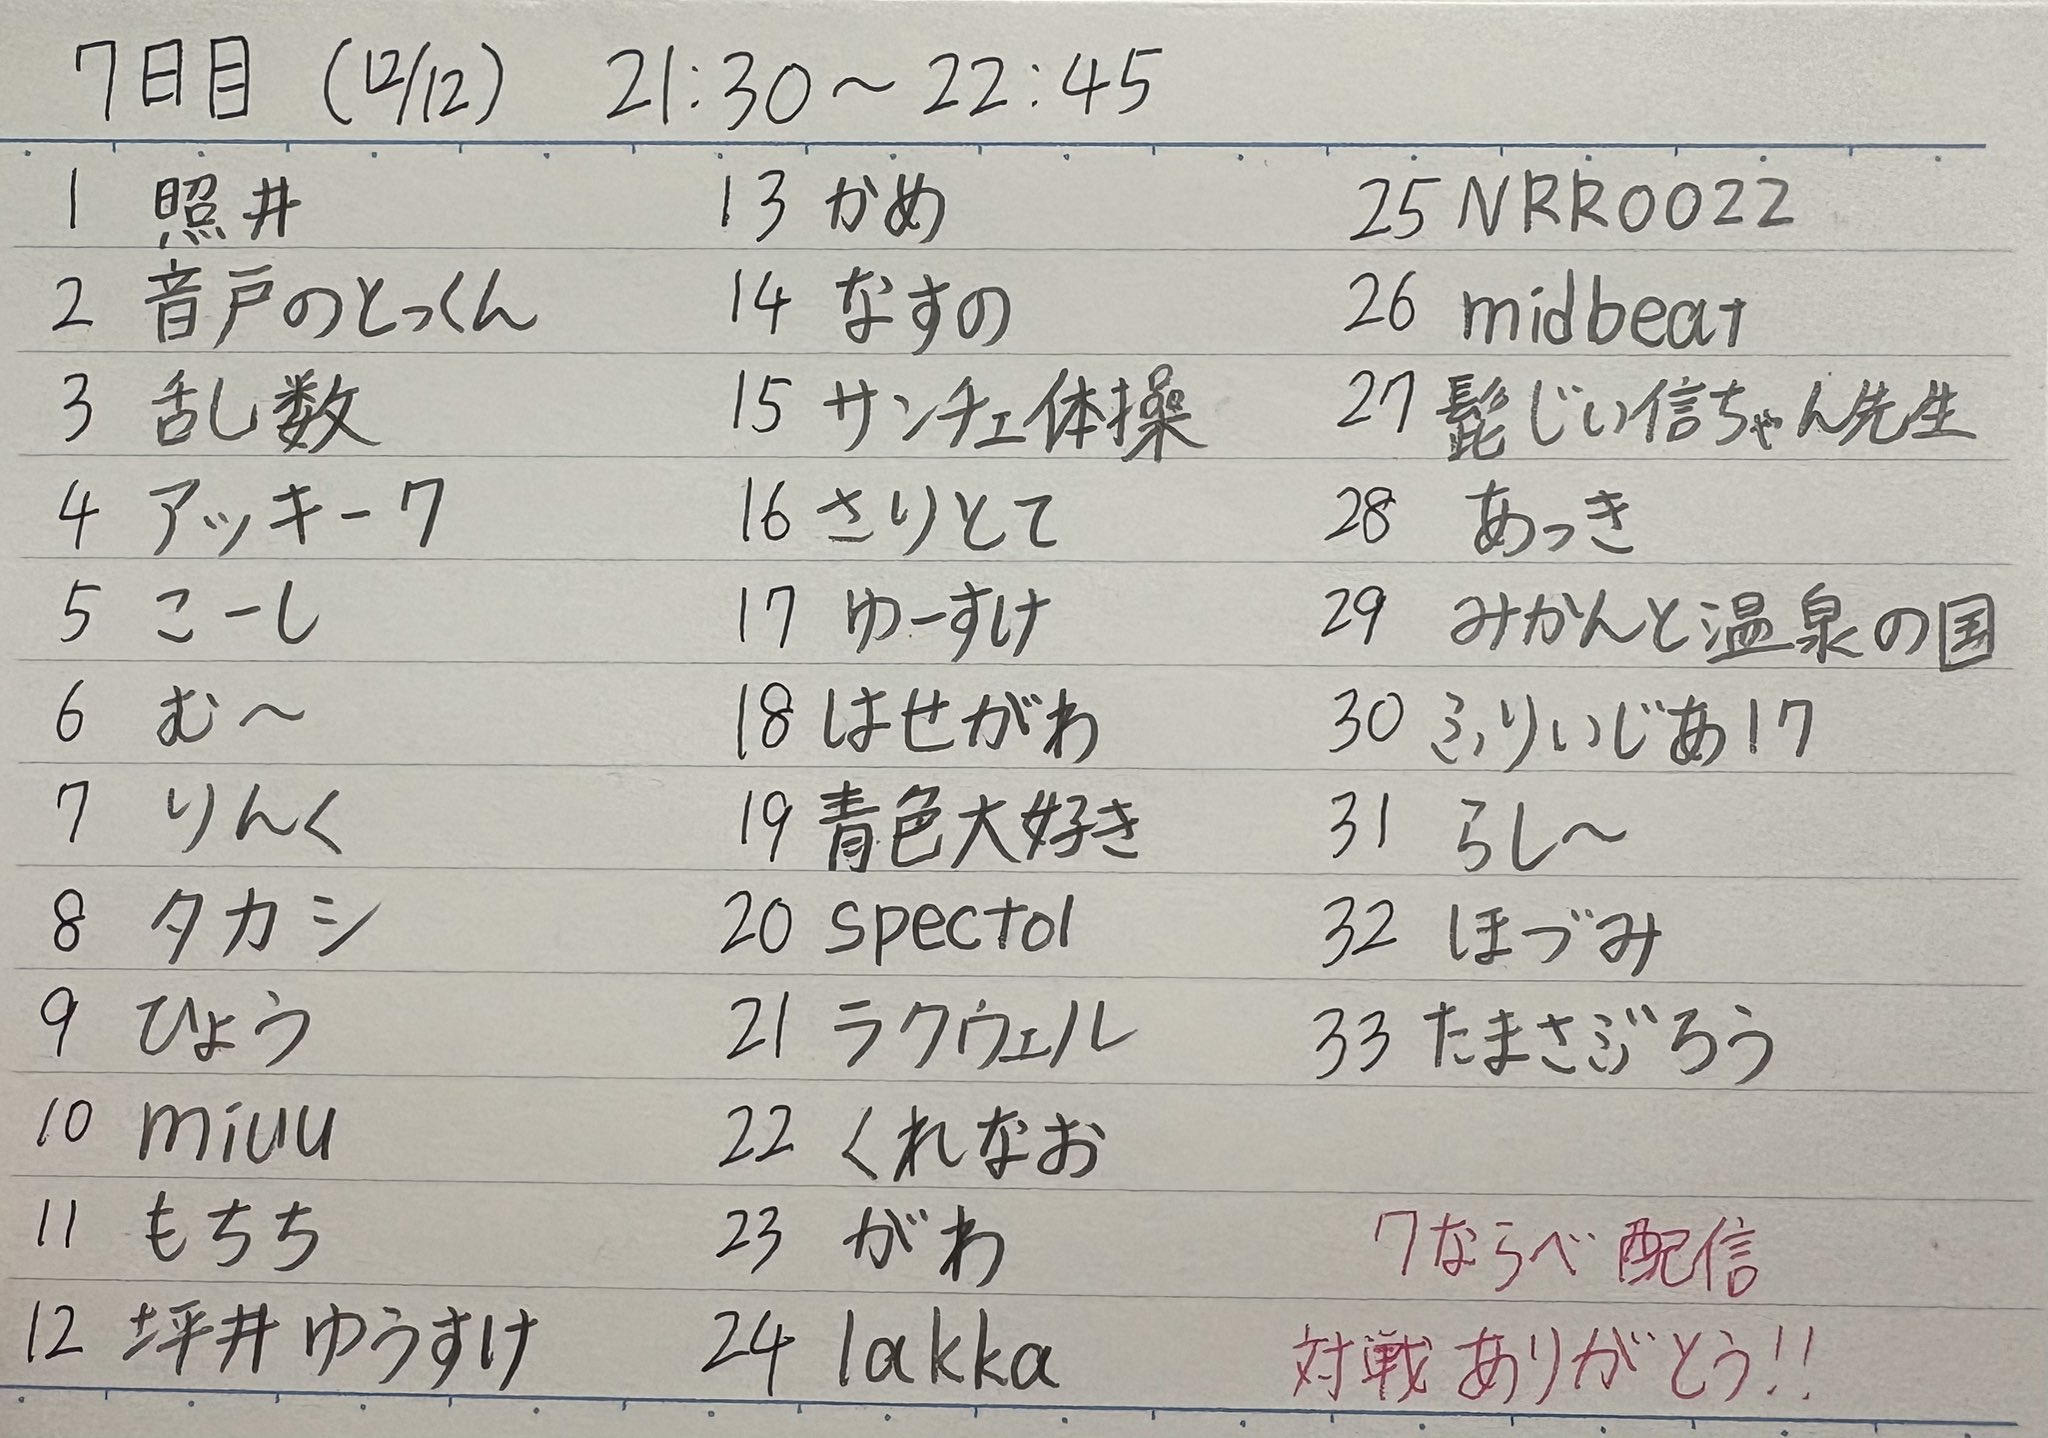 7日目 (12/12) 21:30～22:45
1 照井
2 音戸のとっくん
3 乱数
4 アッキー7
5 こーし
6 む～
7 りんく
8 タカシ
9 ひょう
10 miuu
11 もちち
12 坪井ゆうすけ
13 かめ
14 なすの
15 サンチェ体操
16 さりとて
17 ゆーすけ
18 はせがわ
19 青色大好き
20 spectol
21 ラクウェル
22 くれなお
23 がわ
24 lakka
25 NRR0022
26 midbeat
27 髭じい信ちゃん先生
28 あっき
29 みかんと温泉の国
30 ふりいじあ17
31 らし～
32 ほづみ
33 たまさぶろう
7ならべ配信
対戦ありがとう!!